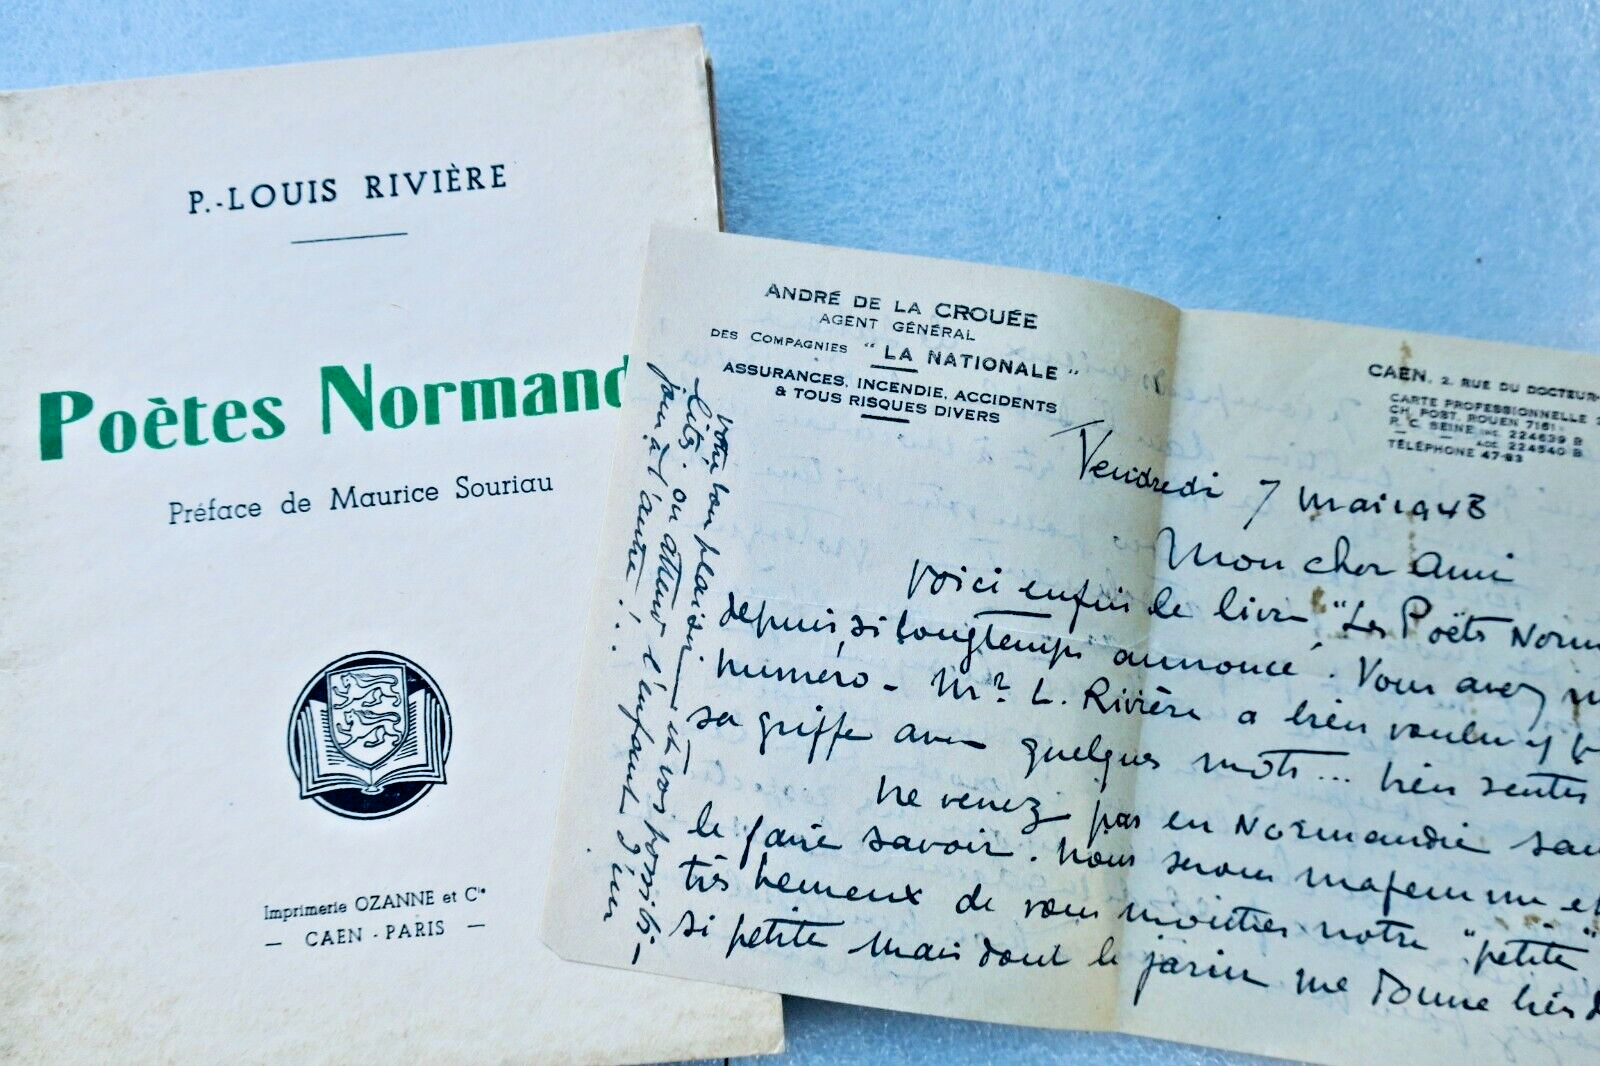 P.-LOUIS RIVIÈRE
Poètes Normand
Préface de Maurice Souriau
Imprimerie OZANNE et Cie
— CAEN - PARIS —
ANDRÉ DE LA CROUÉE
AGENT GÉNÉRAL
DES COMPAGNIES "LA NATIONALE"
ASSURANCES, INCENDIE, ACCIDENTS
& TOUS RISQUES DIVERS
CAEN, 2, RUE DU DOCTEUR-
CARTE PROFESSIONNELLE
CH. POST. ROUEN 7161
R. C. SEINE INC. 224639 B
ACC. 224640 B
TÉLÉPHONE 47-83
Vendredi 7 mai 1948
Mon cher Ami
Voici enfin le livre "Les Poëts Norm
depuis si longtemps annoncé. Vous avez
numéro - Mr. L. Rivière a bien voulu y
sa griffe avec quelques mots... bien sentis
Ne venez pas en Normandie san
le faire savoir. Nous serons ma femme et
très heureux de vous montrer notre "petite"
si petite mais dont le jardin me donne bien
votre bon plaisir et vos possibi-
lités. on attend l'enfant d'un
jour à l'autre!